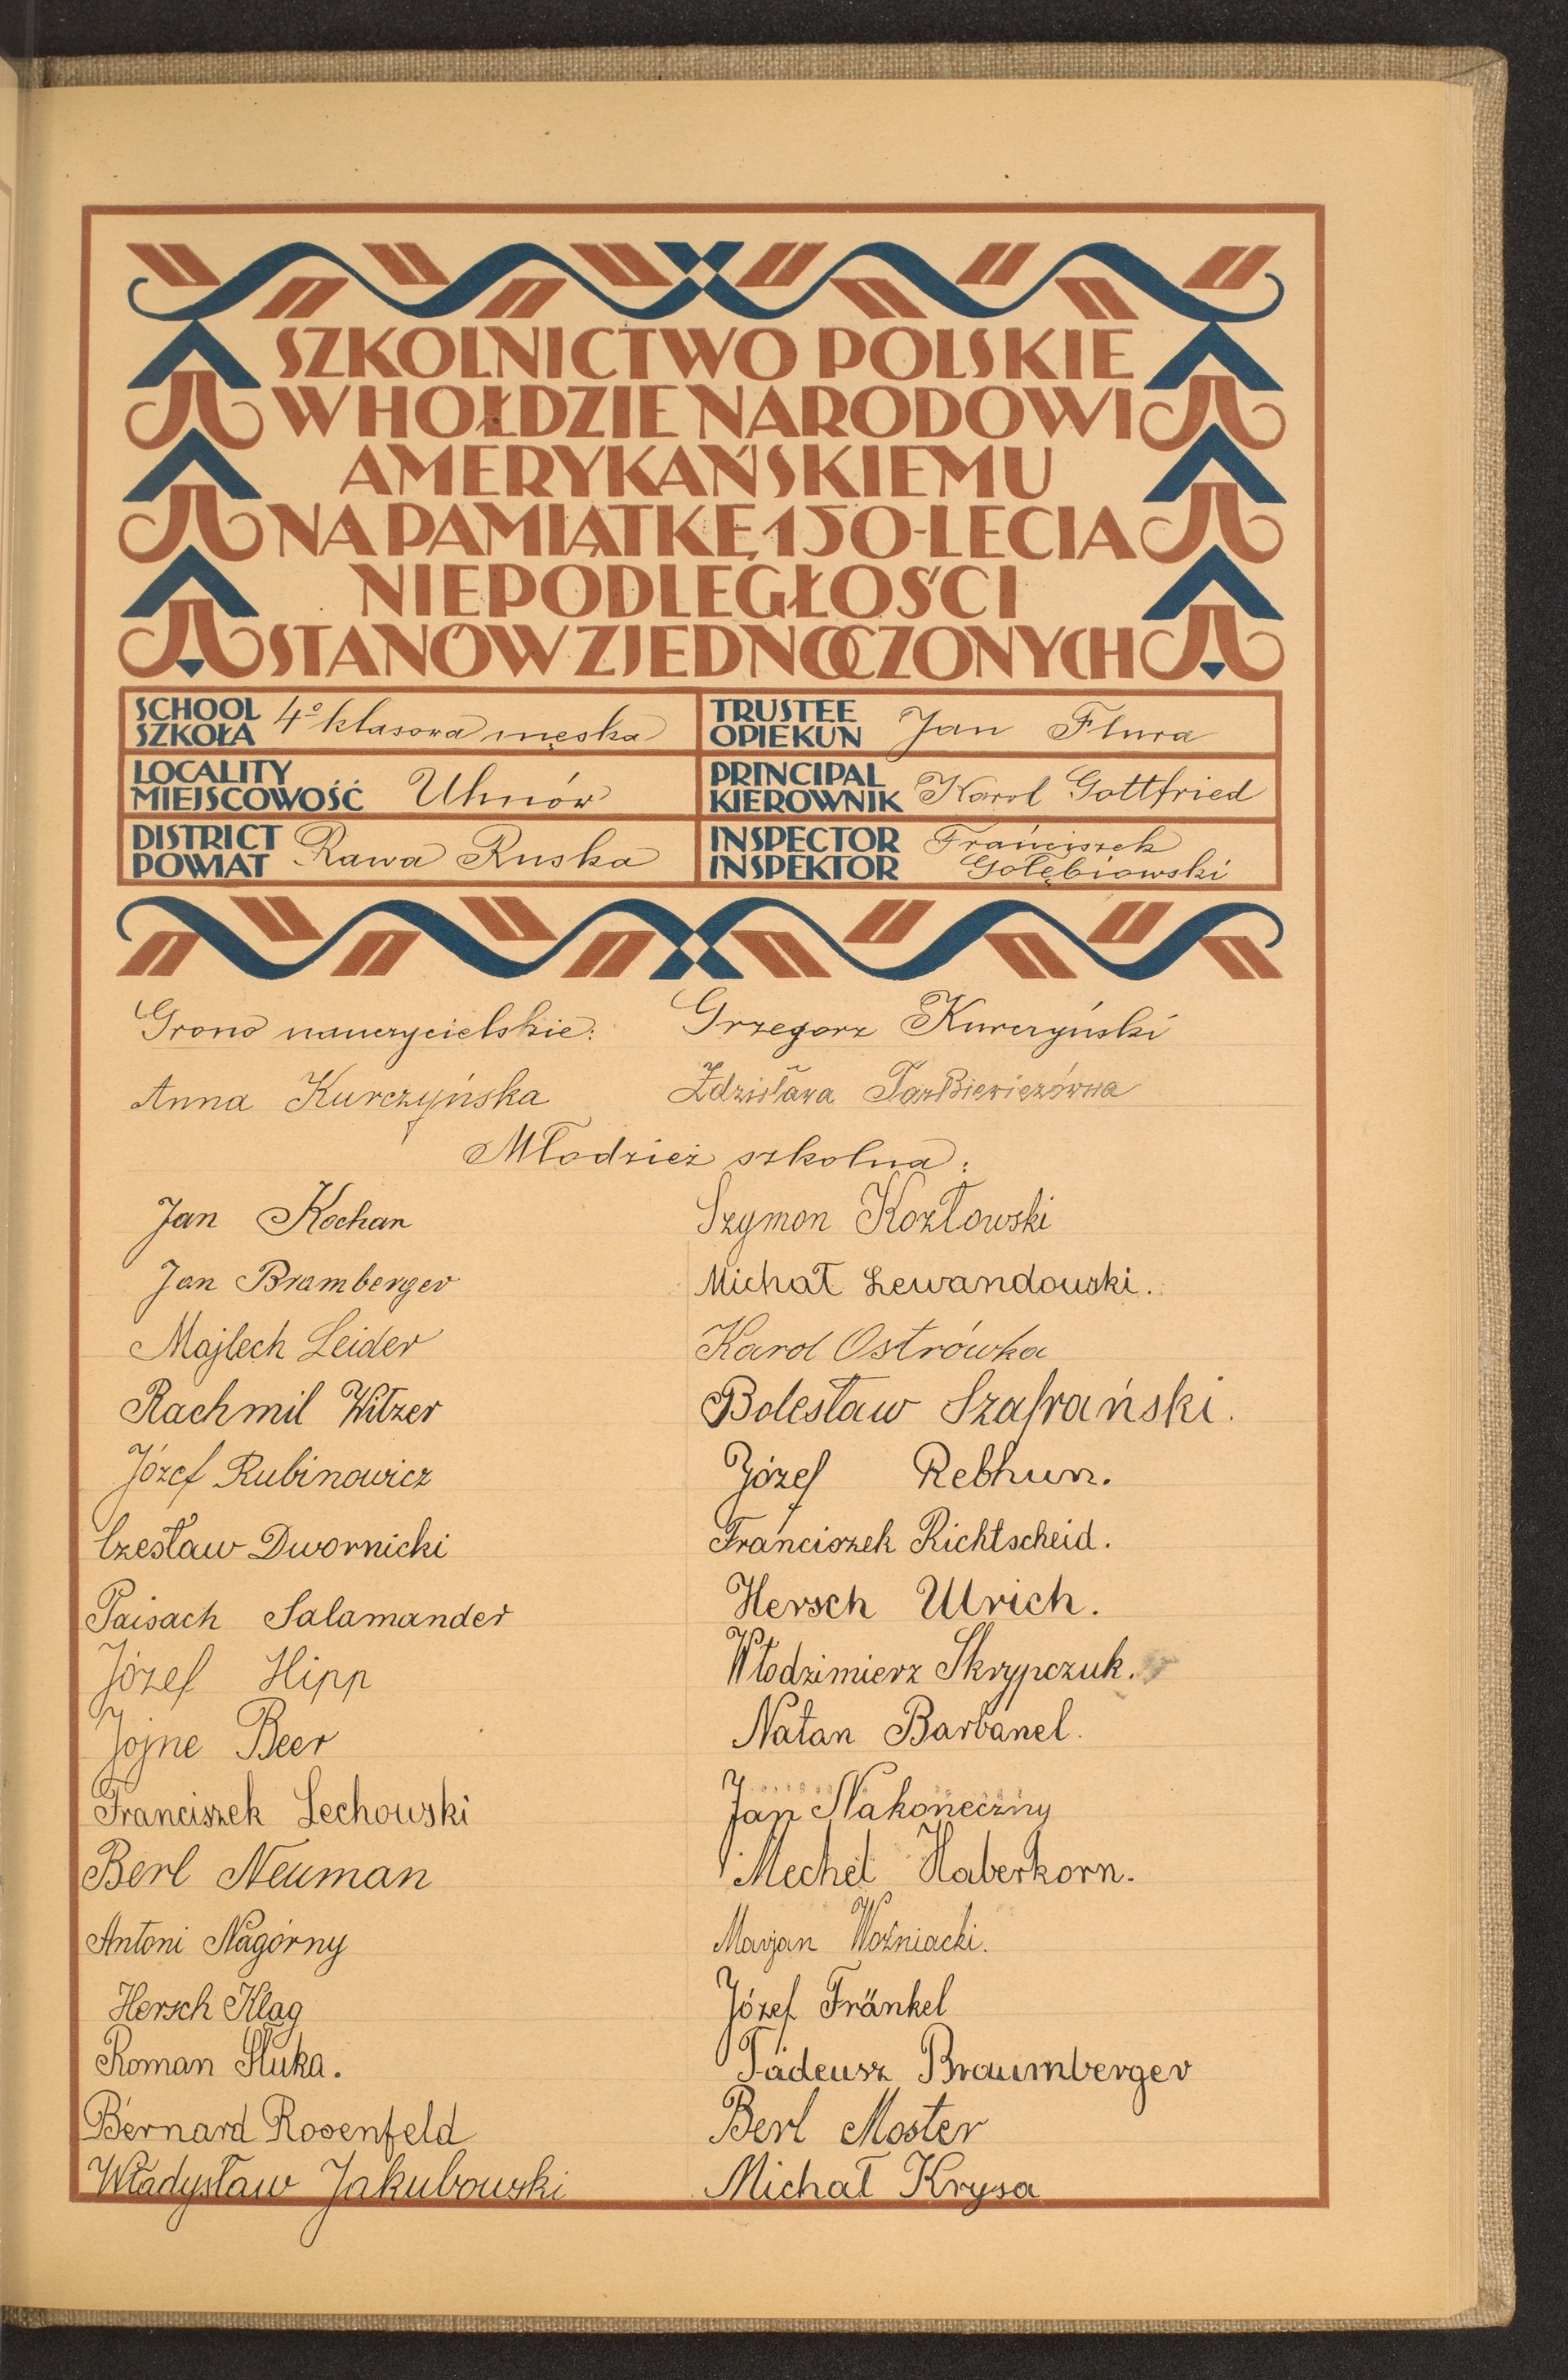 SZKOLNICTWO POLSKIE
W HOŁDZIE NARODOWI
AMERYKAŃSKIEMU
NA PAMIĄTKĘ 150-LECIA
NIEPODLEGŁOŚCI
STANÓW ZJEDNOCZONYCH
SCHOOL
SZKOŁA
4o klasowa męska
TRUSTEE
OPIEKUN
Jan Flura
LOCALITY
MIEJSCOWOŚĆ
Uhnów
PRINCIPAL
KIEROWNIK
Karol Gottfried
DISTRICT
POWIAT
Rawa Ruska
INSPECTOR
INSPEKTOR
Franciszek
Gołębiowski
Grono nauczycielskie:
Grzegorz Kurczyński
Anna Kurczyńska
Zdzisława
Młodzież szkolna:
Jan Kochan
Szymon Kozłowski
Jan Bramberger
Michał Lewandowski.
Majlech Leider
Karol Ostrówka
Rachmil Witzer
Bolesław Szafrański.
Józef Rubinowicz
Józef Rebhun.
Czesław Dwornicki
Franciszek Richtscheid.
Paisach Salamander
Hersch Ulrich.
Józef Hipp
Włodzimierz Skrypczuk.
Jojne Beer
Natan Barbanel.
Franciszek Lechowski
Jan Nakoneczny
Berl Neuman
Mechel Haberkorn.
Antoni Nagórny
Marjan Woźniacki.
Hersch Klag
Józef Fränkel
Roman Słuka.
Tadeusz Braumberger
Bernard Rosenfeld
Berl Moster
Władysław Jakubowski
Michał Krysa